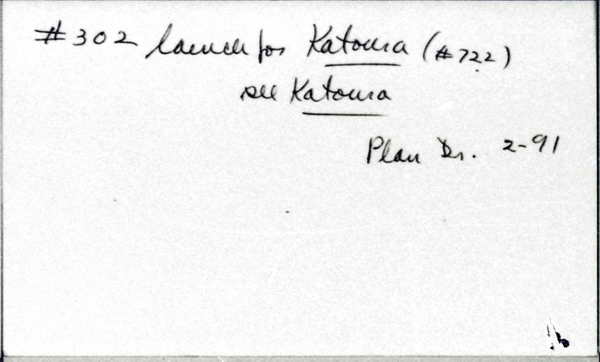 #302 launch for Katoura (#722)
see Katoura
Plan Dr. 2-91